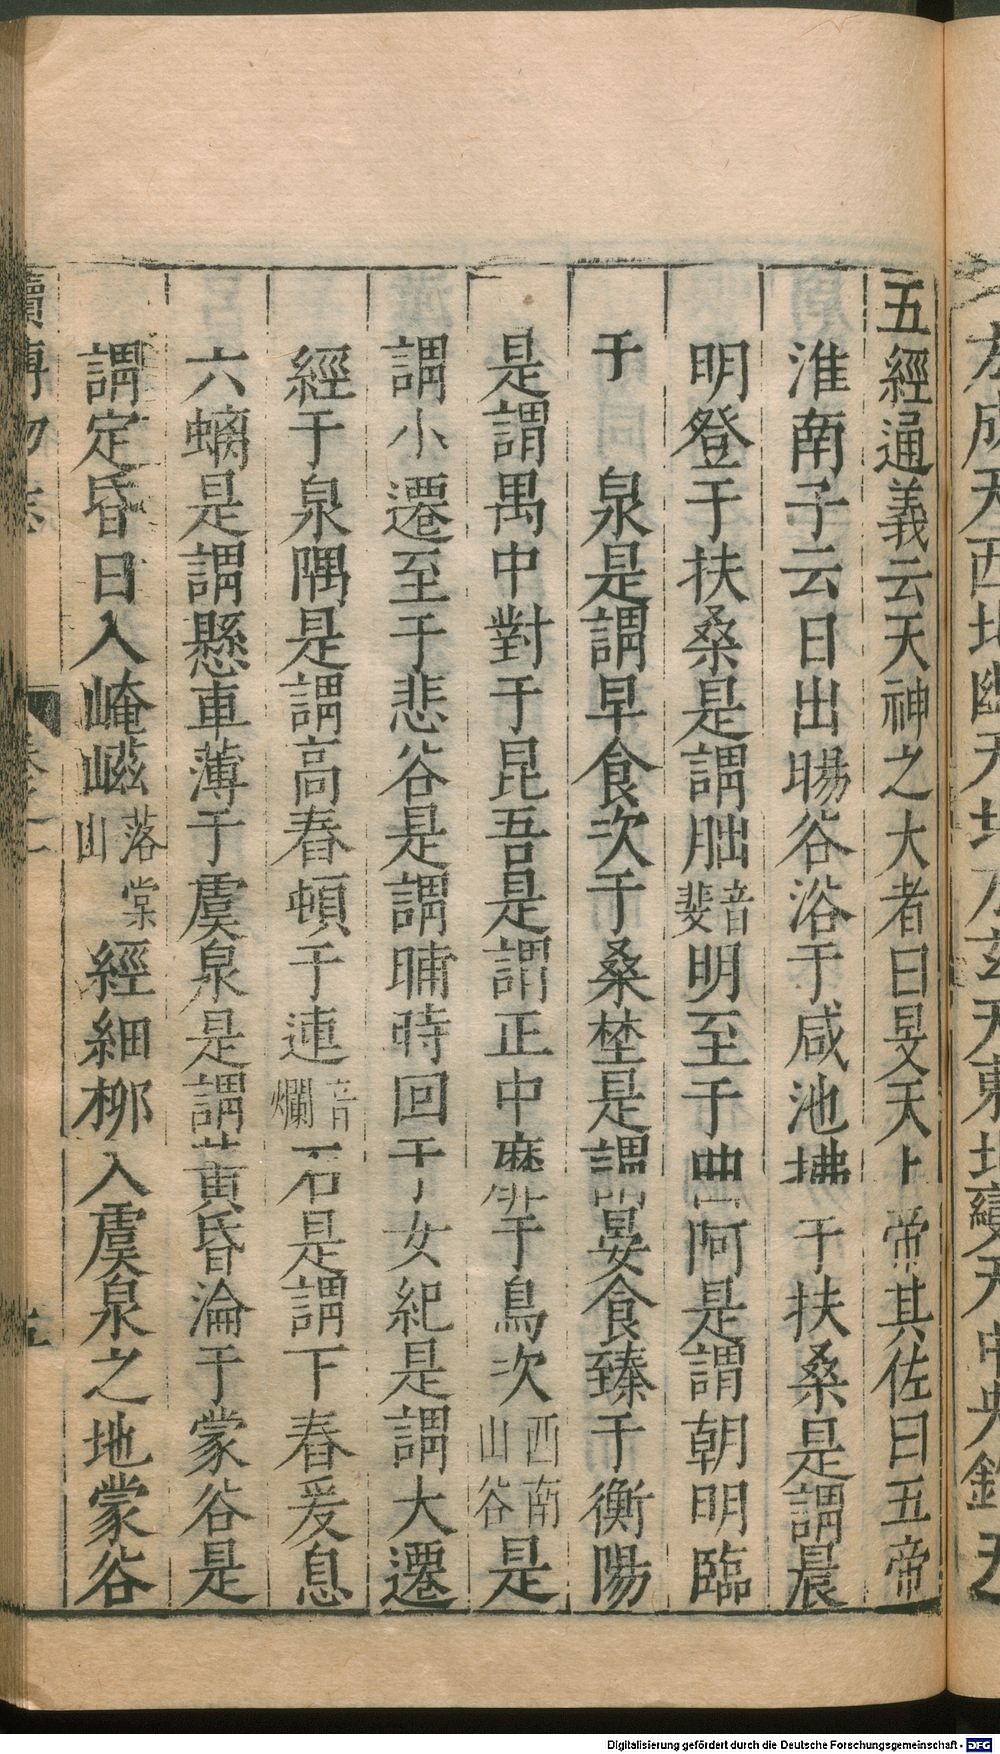 五經通義云天神之大者曰昊天上帝其佐曰五帝
淮南子云日出暘谷浴于咸池拂于扶桑是謂晨
明登于扶桑是謂朏音斐明至于曲阿是謂朝明臨
于泉是謂早食次于桑埜是謂晏食臻于衡陽
是謂禺中對于昆吾是謂正中靡于鳥次西南山谷是
謂小遷至于悲谷是謂晡時回于女紀是謂大遷
經于泉隅是謂高舂頓于連音爛石是謂下舂爰息
六螭是謂懸車薄于虞泉是謂黄昏淪于蒙谷是
謂定昏日入崦嵫落棠山經細柳入虞泉之地蒙谷
Digitalisierung gefördert durch die Deutsche Forschungsgemeinschaft - DFG